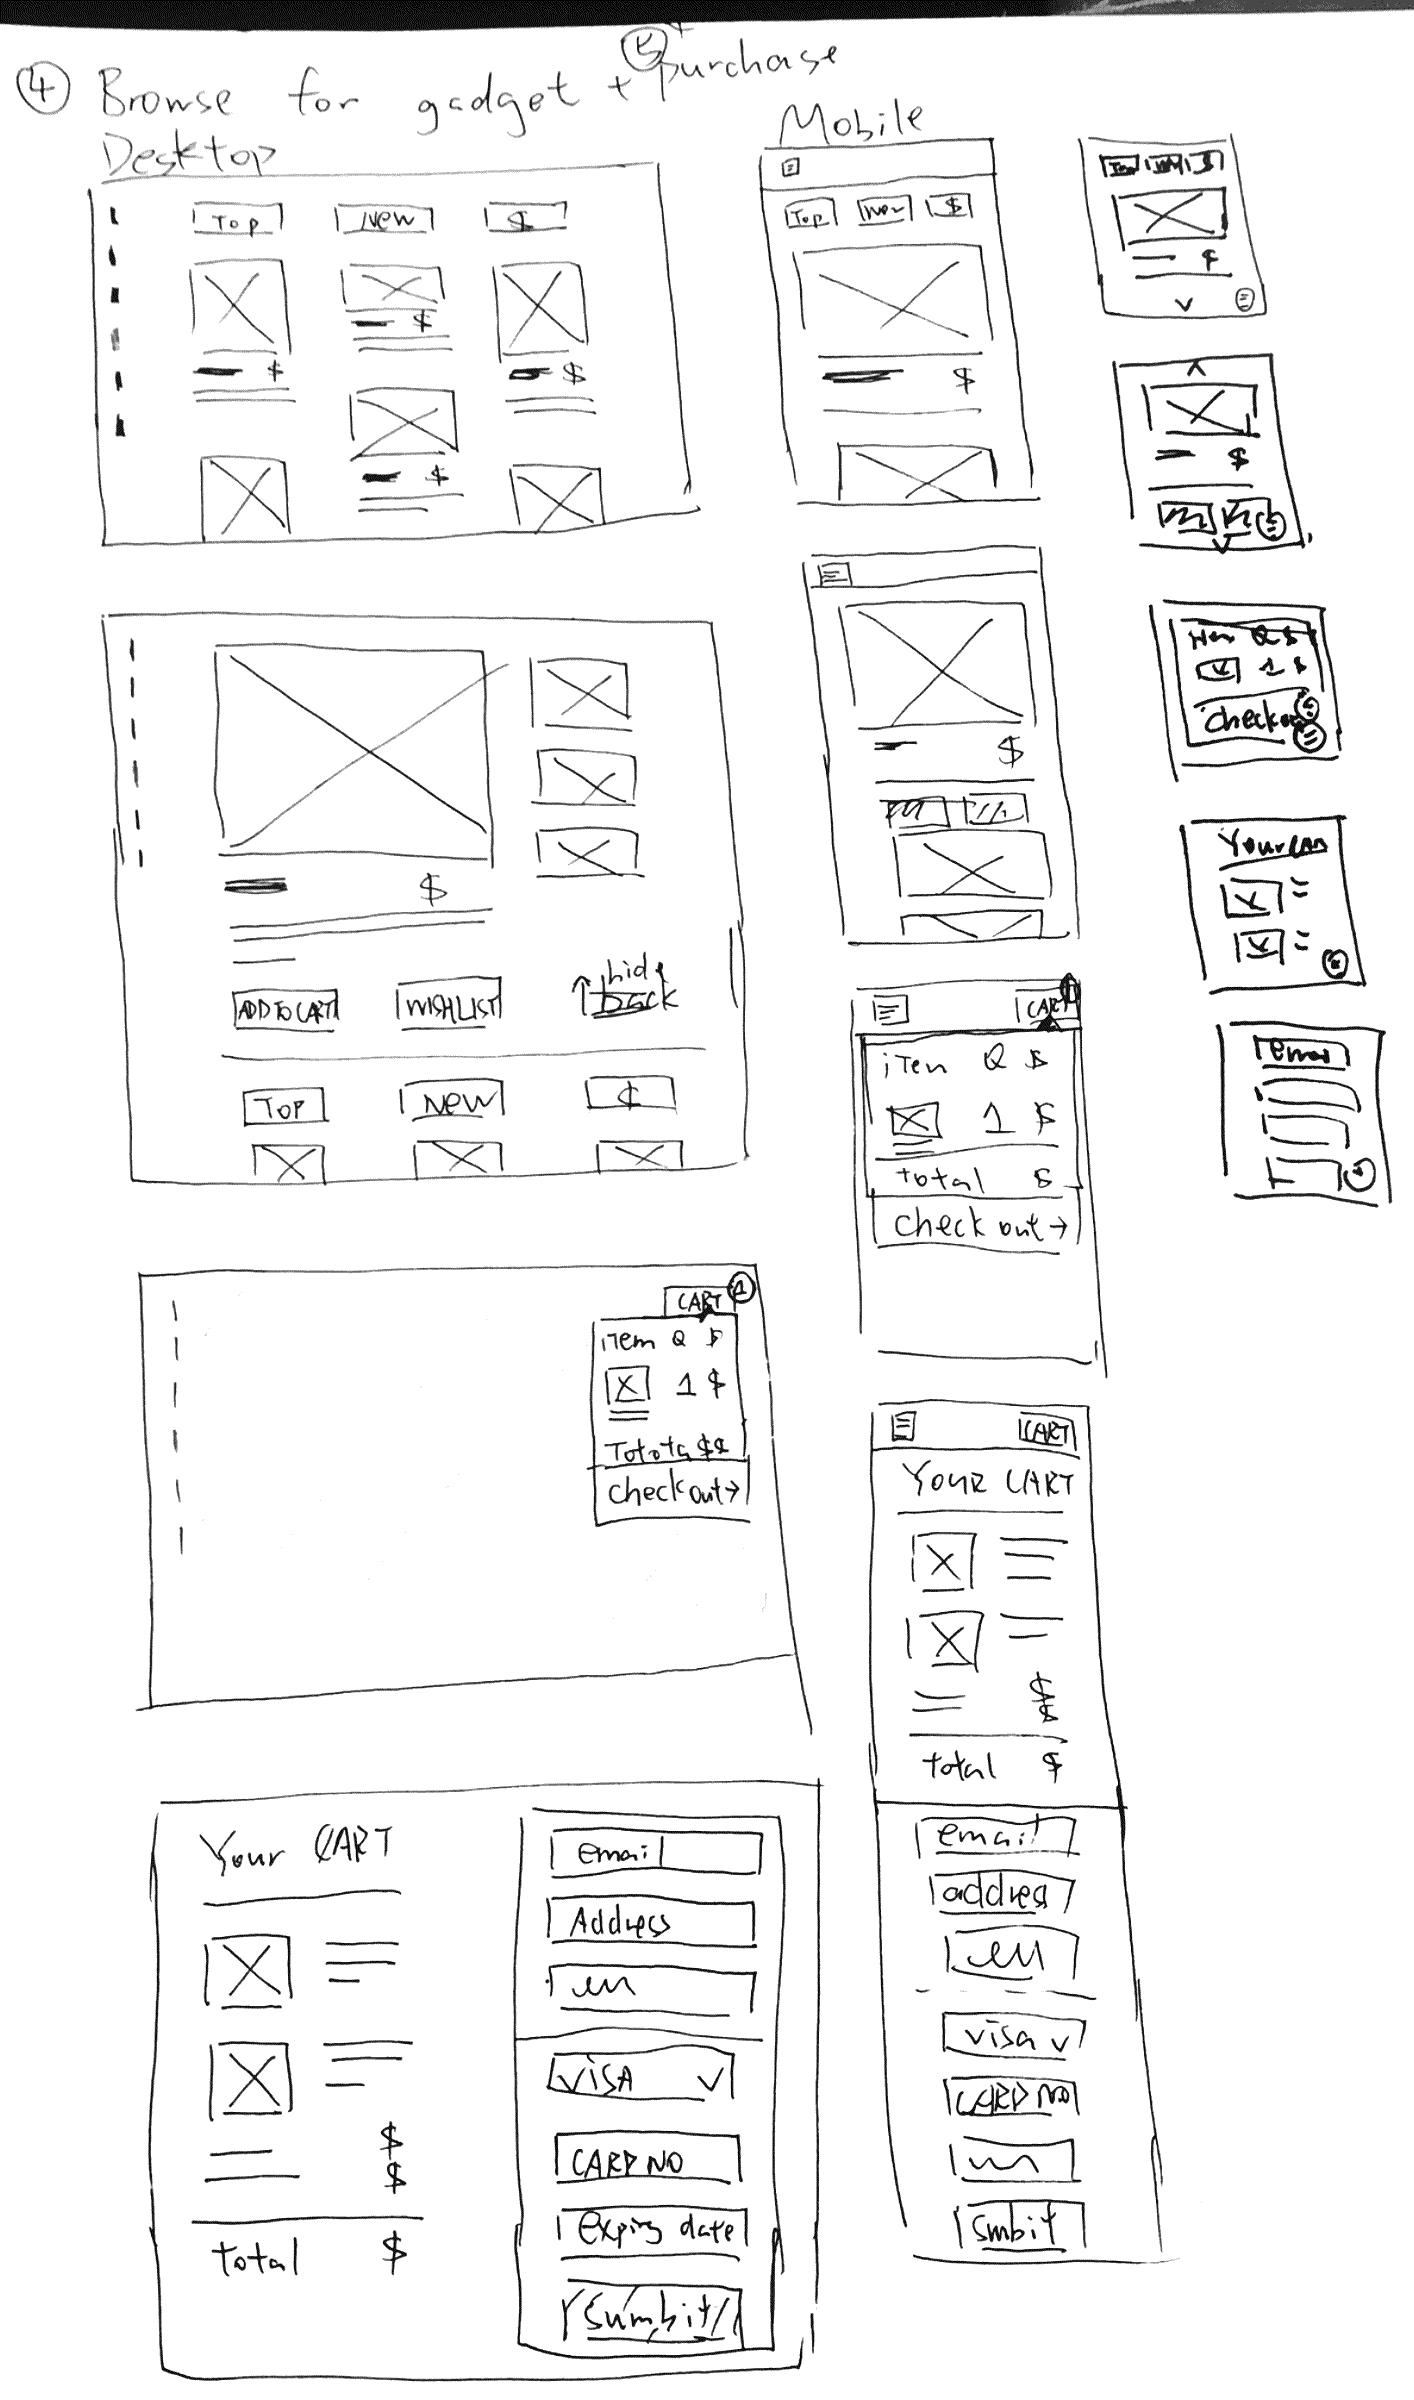 ④ Browse for gadget + ⑤ purchase
Desktop
Top New $
$ $ $
$
$
ADD TO CART WISHLIST ↑ hide back
TOP NEW ¢
CART 1
iTem Q $
1 $
Totota $$
Check out →
Your CART
$
$
total $
email
Address
VISA ∨
CARD NO
Expirg date
Sumbit
Mobile
Top New $
$
$
CART 1
iTen Q $
1 $
total $
Check out →
CART
YOUR CART
$
$
total $
email
addres
visa ∨
CARD NO
Smbit
$
$
Q $
1 $
Check
Your
email